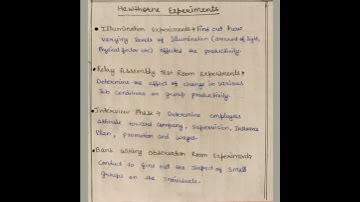 Hawthorne Experiments
• Illumination Experiments → Find out how
varying levels of Illumination (amount of light,
Physical factor etc) affected the productivity.
• Relay Assembly Test Room Experiments →
Determine the effect of change in various
Job conditions on group productivity.
• Interview Phase → Determine employees
attitude toward company, Supervision, Insurance
Plan, promotion and wages.
• Bank Wiring Observation Room Experiment →
Conduct to find out the impact of small
groups on the individuals.